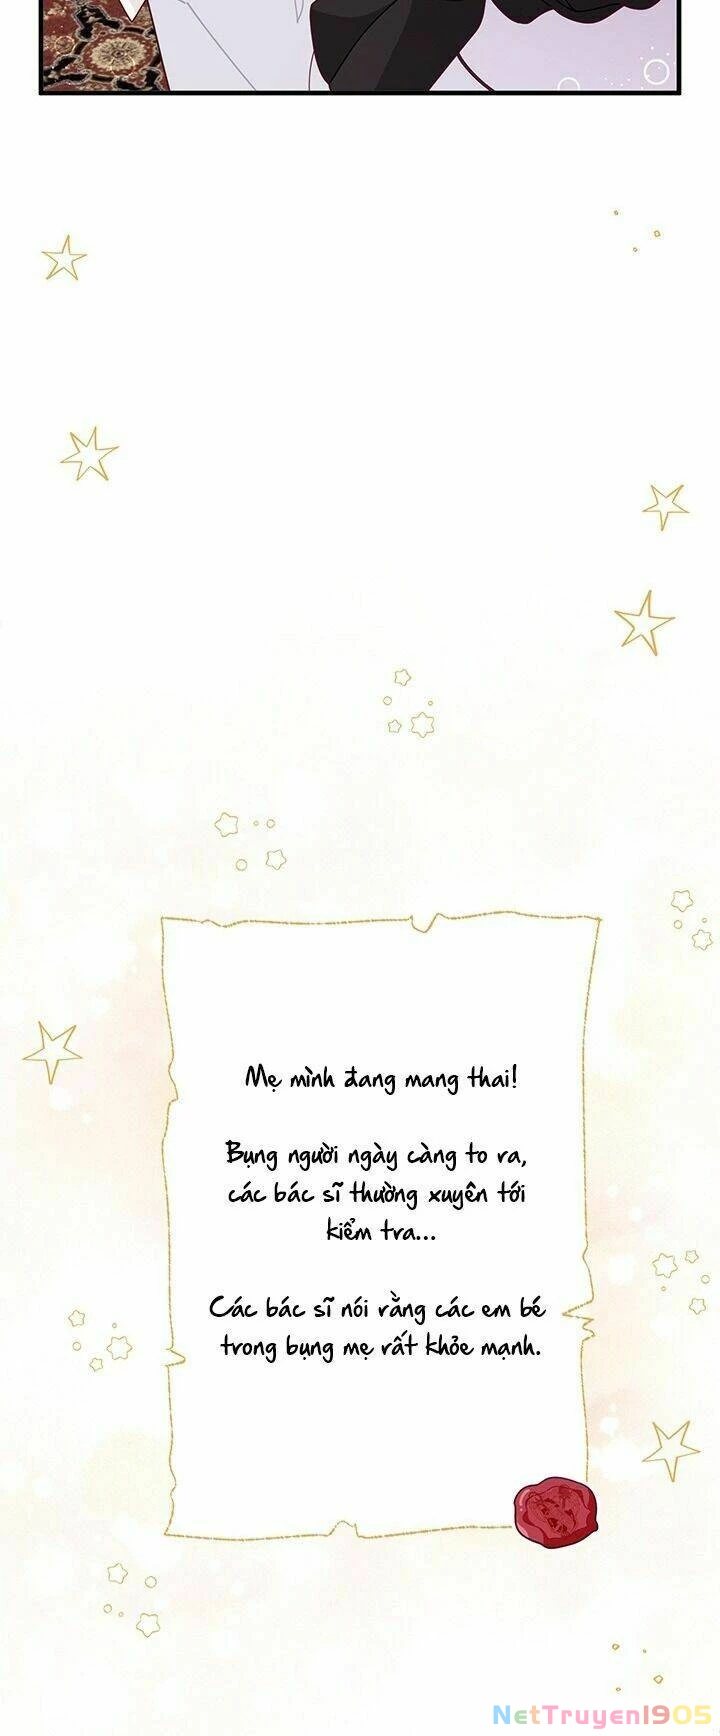 Mẹ mình đang mang thai!
Bụng người ngày càng to ra,
các bác sĩ thường xuyên tới
kiểm tra...
Các bác sĩ nói rằng các em bé
trong bụng mẹ rất khỏe mạnh.
NetTruyen1905